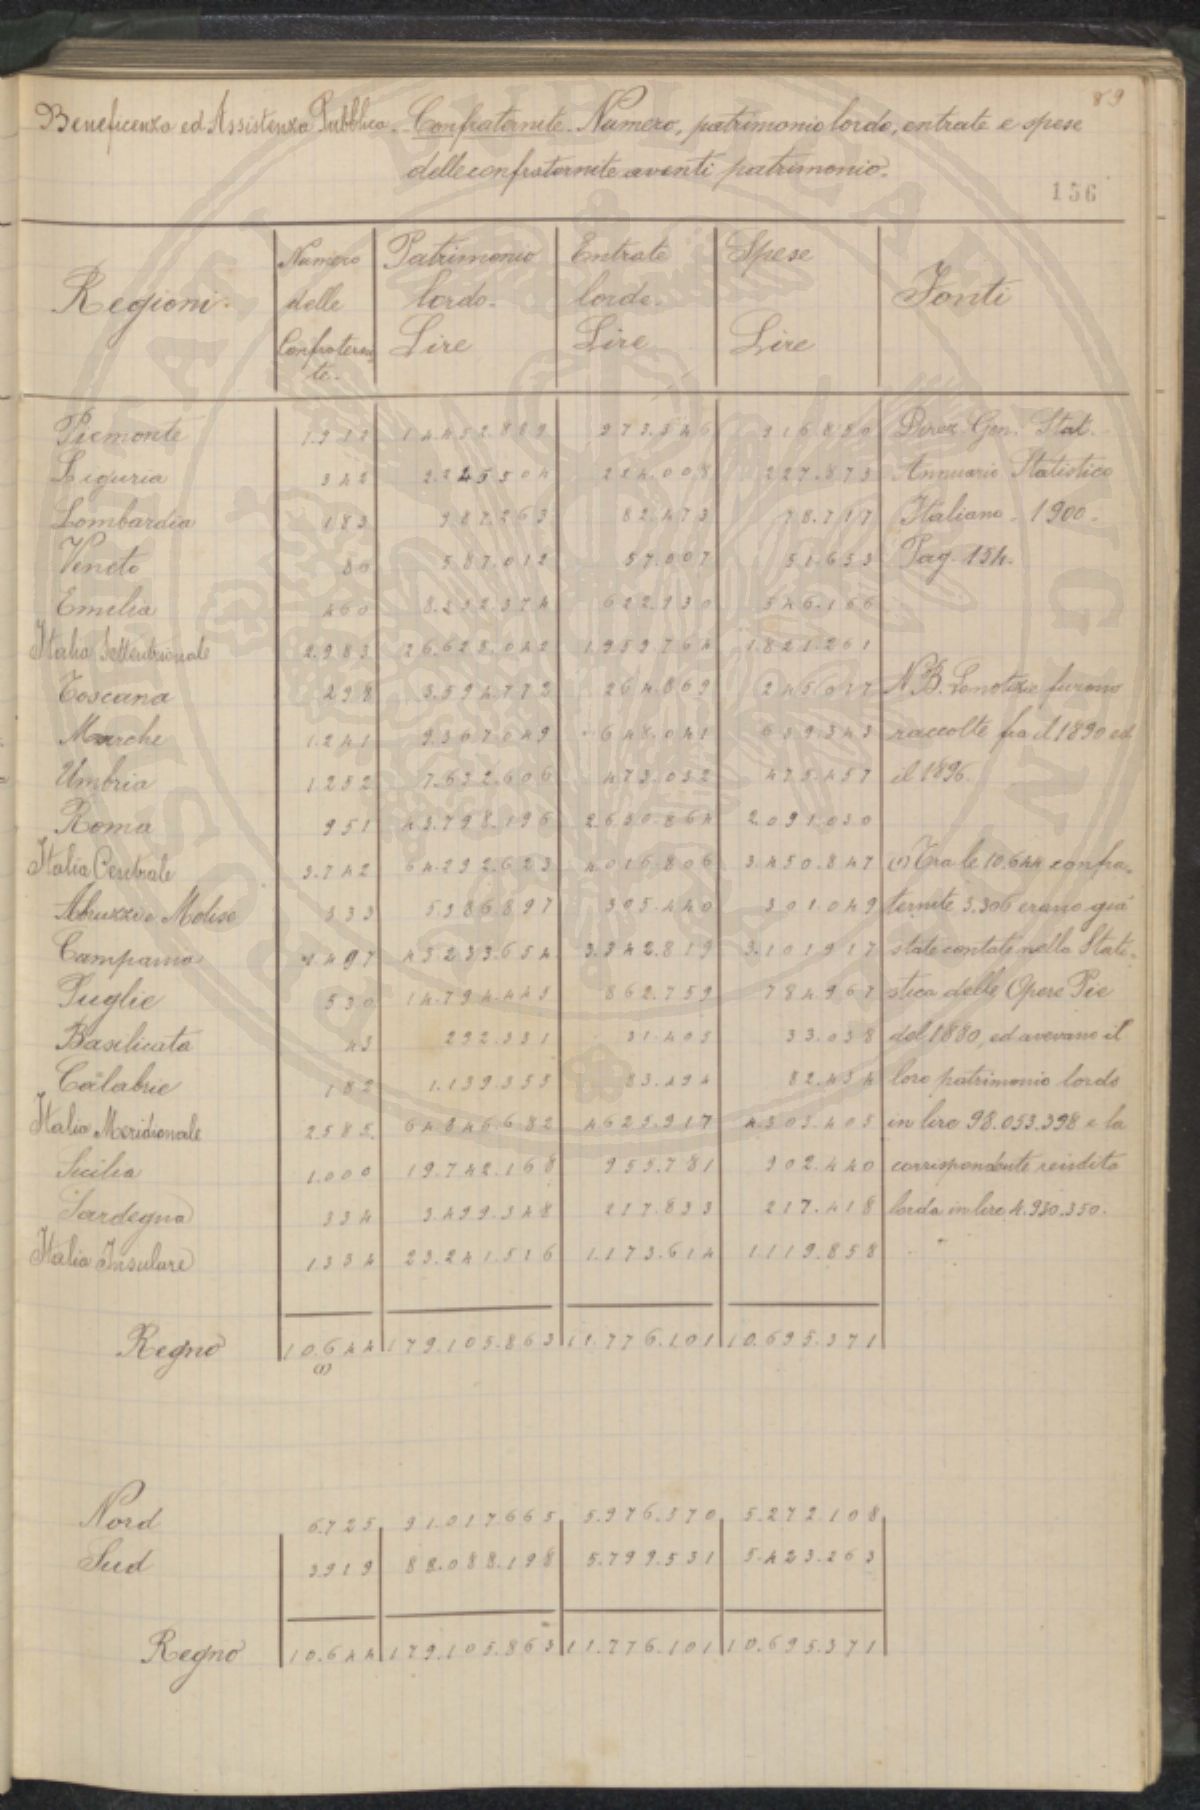 89
Beneficenza ed Assistenza Pubblica. Confraternite. Numero, patrimonio lordo, entrate e spese
delle confraternite aventi patrimonio.
156
Regioni. Numero delle Confraternite. Patrimonio lordo. Lire Entrate lorde. Lire Spese Lire Fonti
Piemonte 1.912 14452.889 973.346 916880 Direz. Gen. Stat.
Liguria 342 2245504 224.008 227.873 Annuario Statistico
Lombardia 183 987.263 82.473 78.717 Italiano. 1900.
Veneto 80 587.012 57.007 51.633 Pag. 134.
Emilia 460 8.232.374 622.930 546.166
Italia Settentrionale 2.983 26.625.042 1.959.764 1.821.261
Toscana 298 3.594.773 264.869 245017 N.B. Le notizie furono
Marche 1.241 9307049 648.041 659.343 raccolte fra il 1890 ed
Umbria 1252 7.632.606 473.032 475.457 il 1896.
Roma 951 43.798.196 2.630.864 2.091.030
Italia Centrale 3.742 64.292.623 4016.806 3.450.847 (1) Tra le 10.644 confra-
Abruzzi e Molise 333 5386897 305.440 301.049 ternite 5.306 erano già
Campania 1497 45233654 3.342.819 3.101917 state contate nella Stati-
Puglie 530 14.794.445 862.759 784.967 stica delle Opere Pie
Basilicata 43 292.331 31.405 33.038 del 1880, ed avevano il
Calabrie 182 1.139.355 83.494 82.434 loro patrimonio lordo
Italia Meridionale 2585 64846.682 4625.917 4.303.405 in lire 98.053.398 e la
Sicilia 1.000 19.742.168 955.781 902.440 corrispondente rendita
Sardegna 334 3.499.348 217.833 217.418 lorda in lire 4.930.350.
Italia Insulare 1334 23.241.516 1.173.614 1.119.858
Regno 10.644 179.105.863 11.776.101 10.695.371
(1)
Nord 6725 91.017665 5.976.570 5.272108
Sud 3919 88.088.198 5.799.531 5.423.263
Regno 10.644 179.105.863 11.776.101 10.695.371